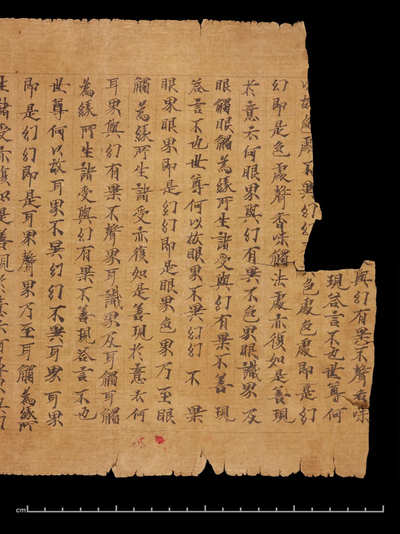 與幻有異不聲香味
現答言不也世尊何
以故色處不異幻幻色處色處即是幻
幻即是色處聲香味觸法處亦復如是善現
於意云何眼界與幻有異不色界眼識界及
眼觸眼觸為緣所生諸受與幻有異不善現
荅言不也世尊何以故眼界不異幻幻不異
眼界眼界即是幻幻即是眼界色界乃至眼
觸為緣所生諸受亦復如是善現於意云何
耳界與幻有異不聲界耳識界及耳觸耳觸
為緣所生諸受與幻有異不善現答言不也
世尊何以故耳界不異幻幻不異耳界耳界
即是幻幻即是耳界聲界乃至耳觸為緣所
生諸受亦復如是善現於意云何
cm